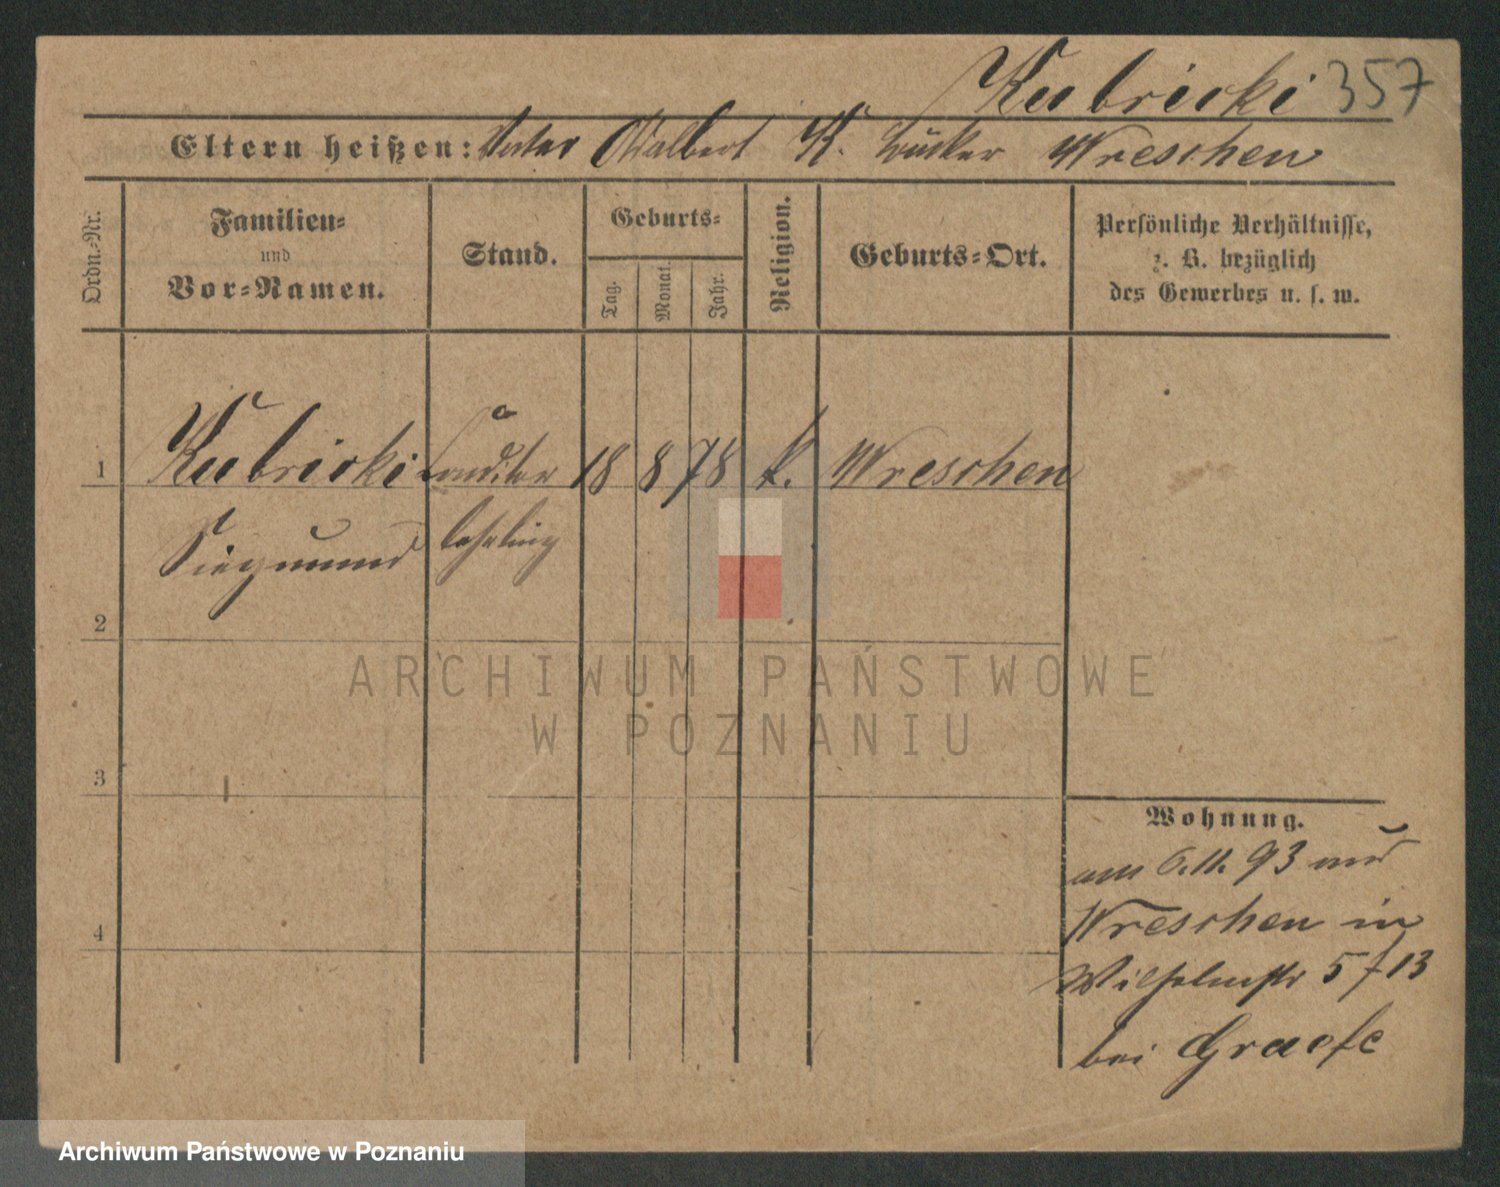 Kubricki 357
Eltern heißen: Vater Adalbert K. Wreschen
Ordn.-Nr.
Familien-
und
Vor-Namen.
Stand.
Geburts-
Tag.
Monat.
Jahr.
Religion.
Geburts-Ort.
Persönliche Verhältnisse,
z. B. bezüglich
des Gewerbes u. s. w.
1 Kubricki Conditor 18 8 78 k. Wreschen
Siegmund lehrling
2
3
4
Wohnung.
am 6.11.93 aus
Wreschen in
Wilhelmstr 5 / 13
bei Graefe
ARCHIWUM PAŃSTWOWE
W POZNANIU
Archiwum Państwowe w Poznaniu